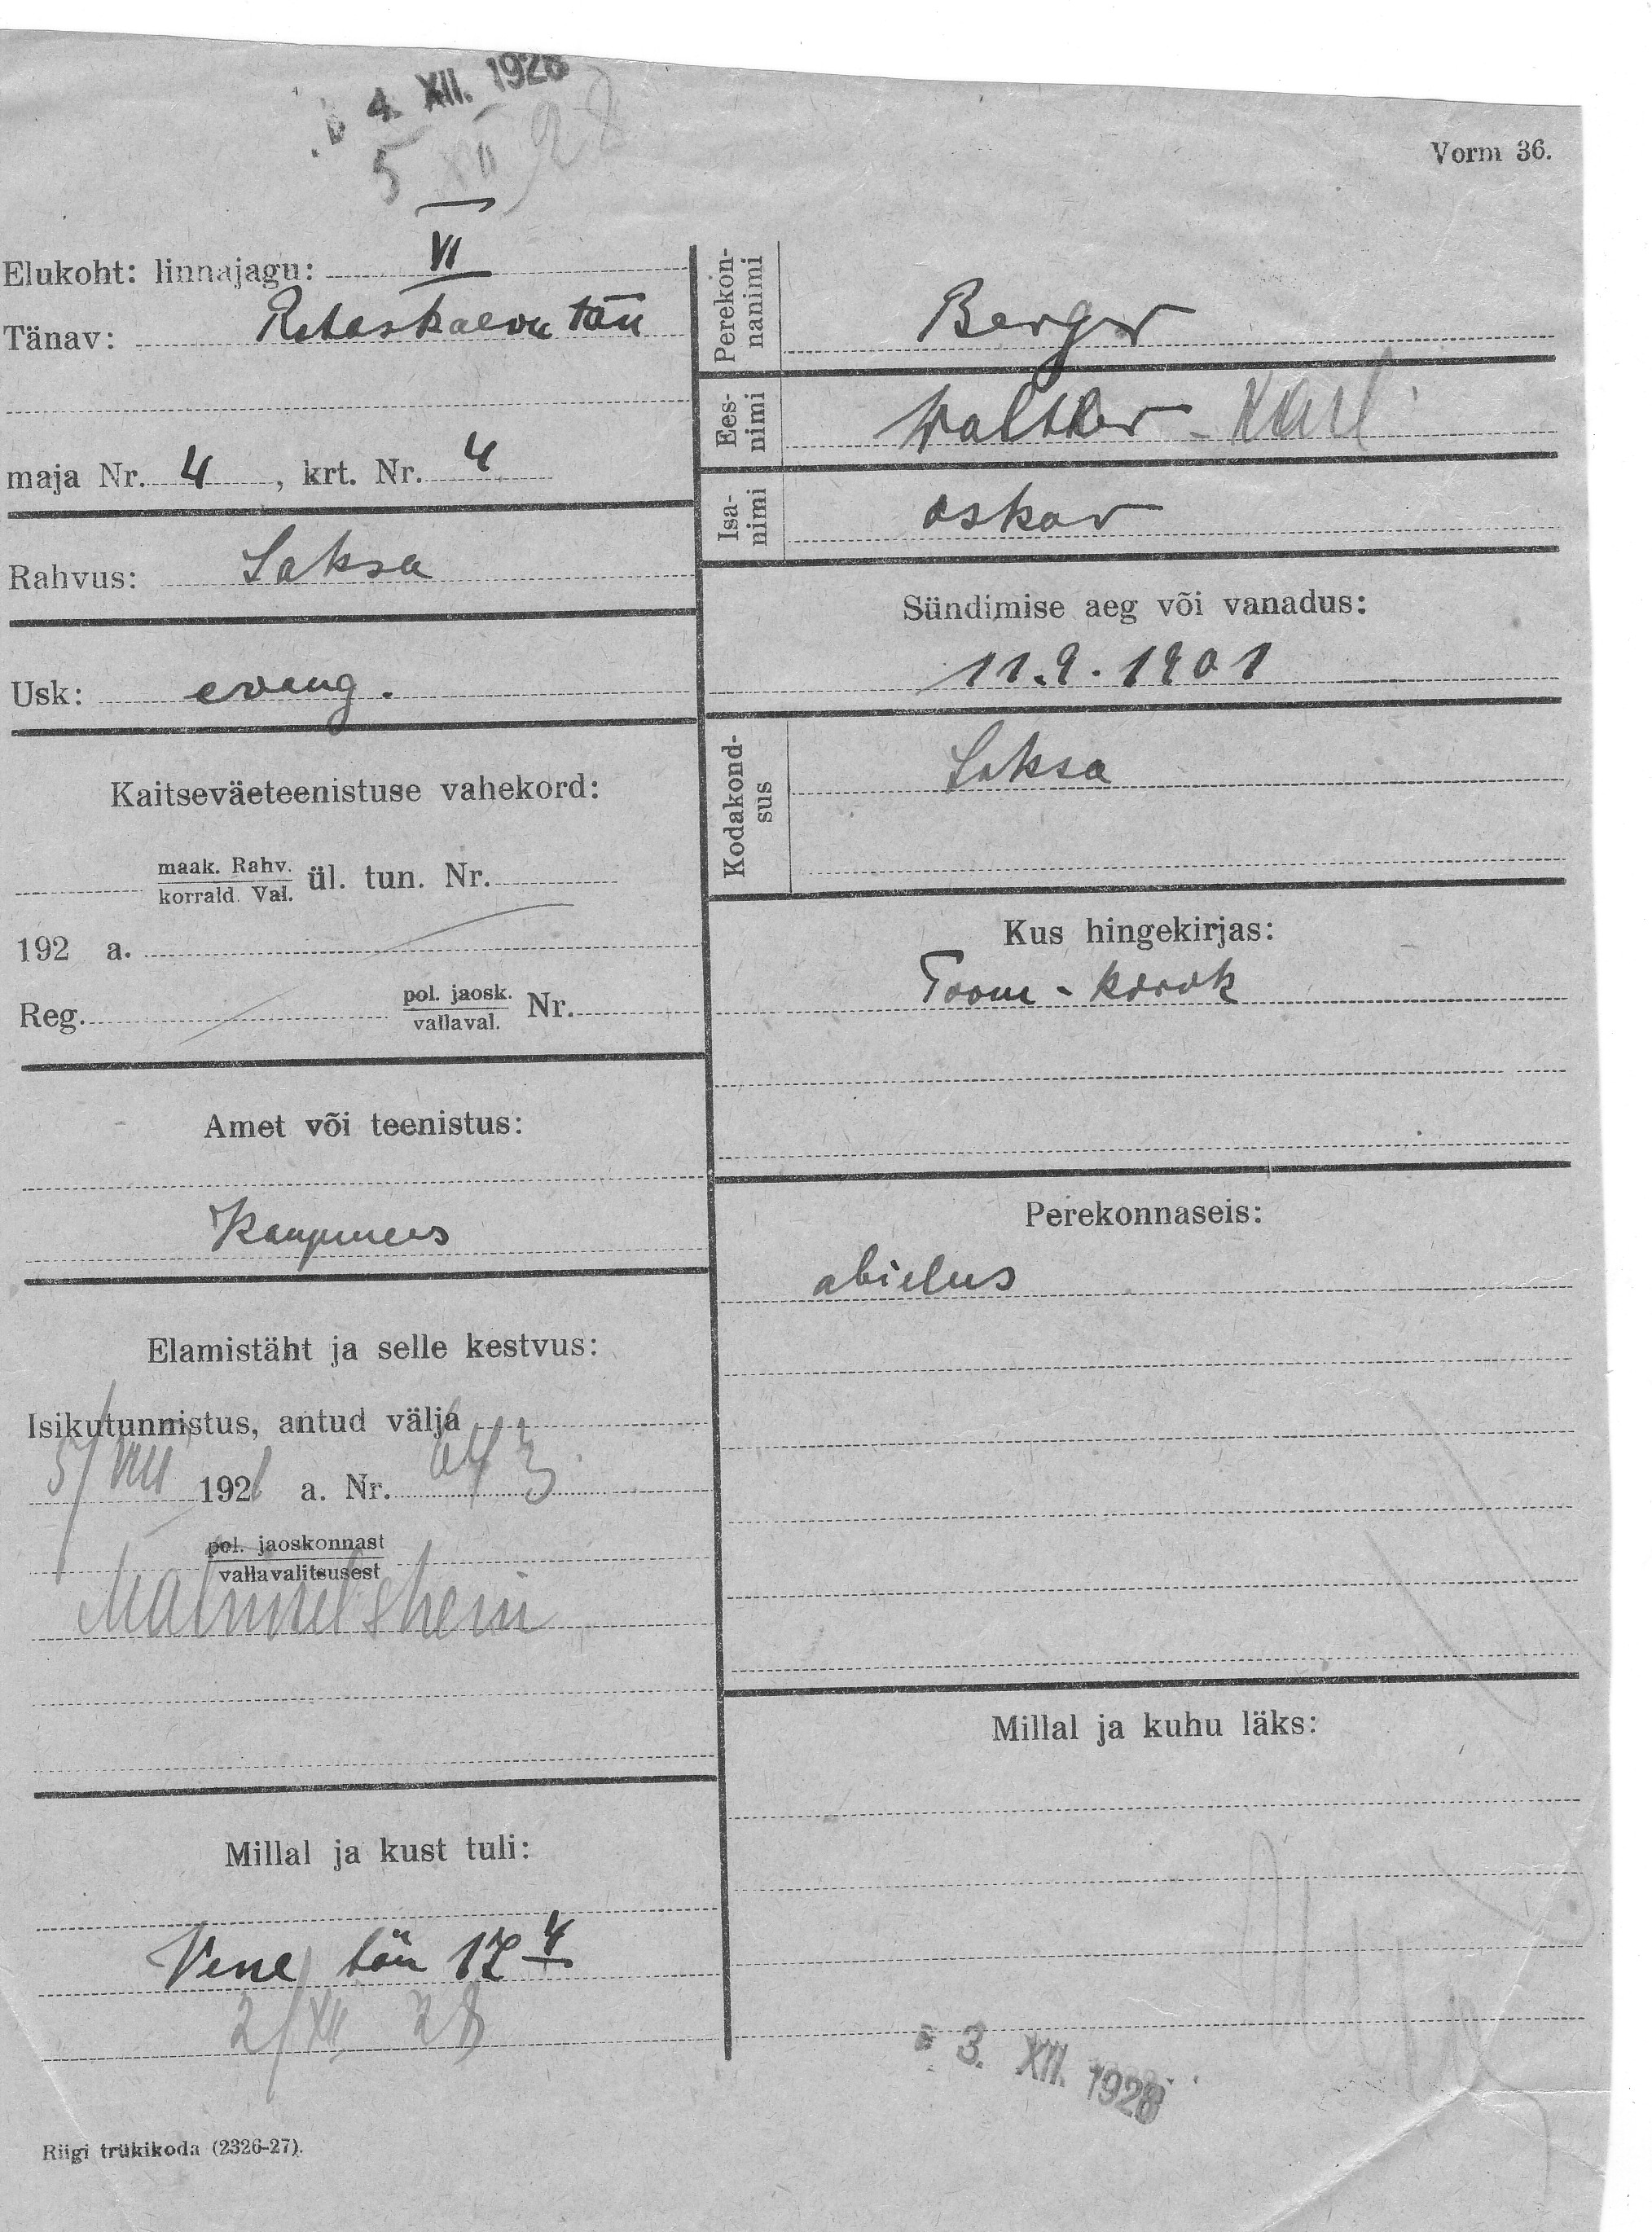 4. XII. 1928
5 XII 28
Vorm 36.
Elukoht: linnajagu: VI
Tänav: Rataskaevu tän
maja Nr. 4, krt. Nr. 4
Rahvus: Saksa
Usk: evang.
Kaitseväeteenistuse vahekord:
maak. Rahv.
korrald. Val. ül. tun. Nr.
192 a.
Reg. pol. jaosk. Nr.
vallaval.
Amet või teenistus:
Kaupmees
Elamistäht ja selle kestvus:
Isikutunnistus, antud välja
5/VIII 1928 a. Nr. 643
pol. jaoskonnast
vallavalitsusest
Millal ja kust tuli:
Vene tän 17 4
2/XII 28
Riigi trükikoda (2326-27).
Perekon-
nanimi
Berger
Ees-
nimi
Walther - Karl
Isa-
nimi
Oskar
Sündimise aeg või vanadus:
11.9.1901
Kodakond-
sus
Saksa
Kus hingekirjas:
Toom-kirik
Perekonnaseis:
abielus
Millal ja kuhu läks:
3. XII. 1928